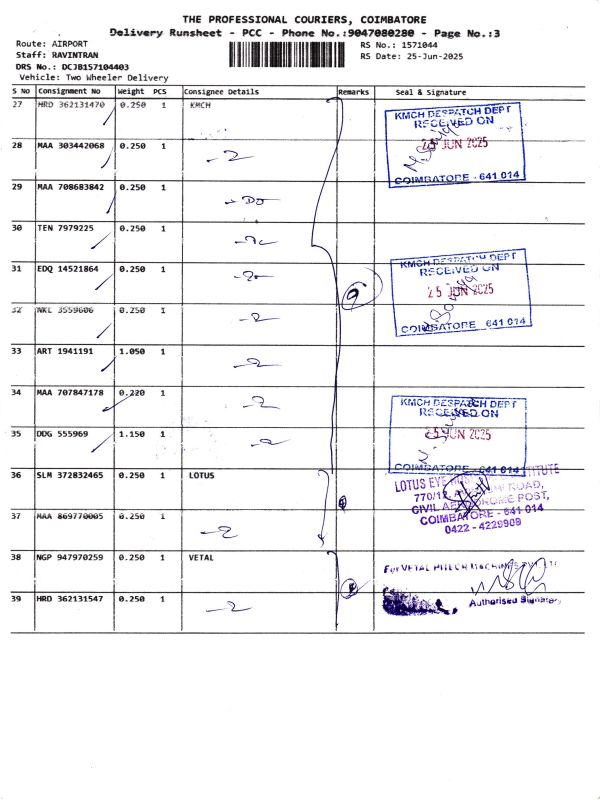 THE PROFESSIONAL COURIERS, COIMBATORE
Delivery Runsheet - PCC - Phone No.:9047080280 - Page No.:3
Route: AIRPORT
Staff: RAVINTRAN
DRS No.: DCJB157104403
Vehicle: Two Wheeler Delivery
RS No.: 1571044
RS Date: 25-Jun-2025
S No Consignment No Weight PCS Consignee Details Remarks Seal & Signature
27 HRD 362131470 0.250 1 KMCH
28 MAA 303442068 0.250 1
29 MAA 708683842 0.250 1
KMCH DESPATCH DEPT
RECEIVED ON
25 JUN 2025
COIMBATORE - 641 014
30 TEN 7979225 0.250 1
31 EDQ 14521864 0.250 1
32 NKL 3559606 0.250 1
9
KMCH DESPATCH DEPT
RECEIVED ON
25 JUN 2025
COIMBATORE - 641 014
33 ART 1941191 1.050 1
34 MAA 707847178 0.220 1
35 DDG 555969 1.150 1
KMCH DESPATCH DEPT
RECEIVED ON
25 JUN 2025
COIMBATORE - 641 014
36 SLM 372832465 0.250 1 LOTUS
37 MAA 869770005 0.250 1
LOTUS EYE
770/12
ROAD,
CIVIL AERODROME POST,
COIMBATORE - 641 014
0422 - 4229909
38 NGP 947970259 0.250 1 VETAL
39 HRD 362131547 0.250 1
For VETAL
Authorised Signatory